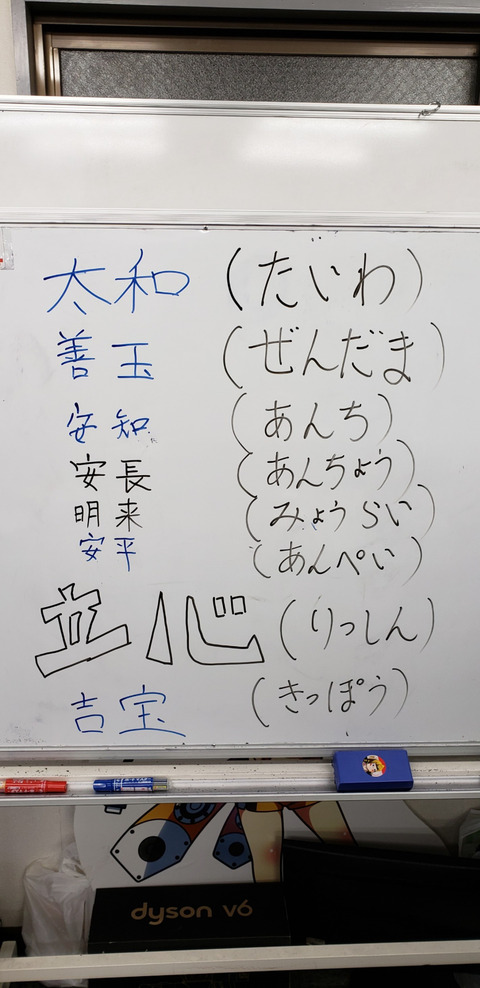 太和 (たいわ)
善玉 (ぜんだま)
安知 (あんち)
安長 (あんちょう)
明来 (みょうらい)
安平 (あんぺい)
立心 (りっしん)
吉宝 (きっぽう)
dyson v6